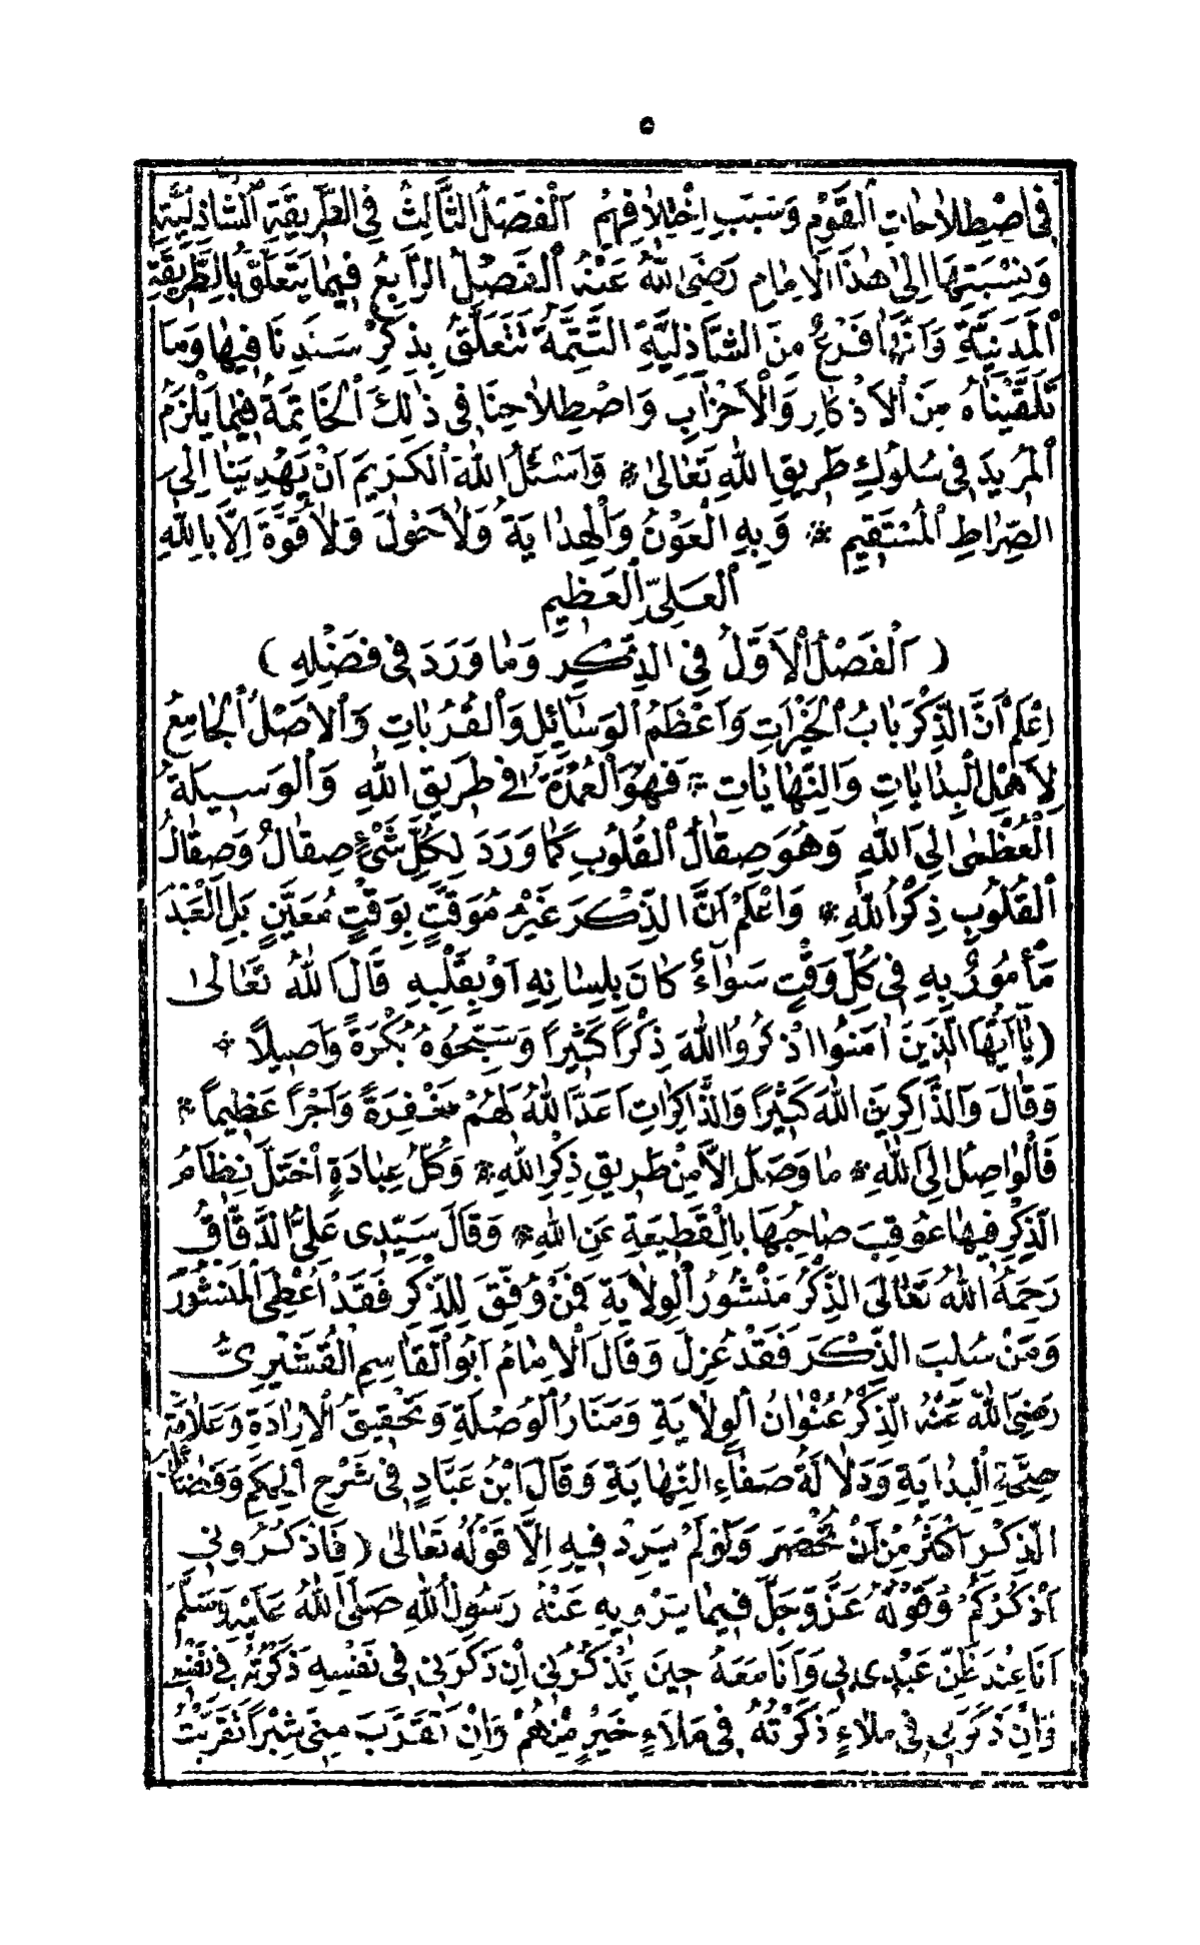 ٥
فِى اصْطِلَاحَاتِ الْقَوْمِ وَسَبَبِ اخْتِلَافِهِمْ اَلْفَصْلُ الثَّالِثُ فِى الطَّرِيقَةِ الشَّاذِلِيَّةِ
وَنِسْبَتِهَا اِلٰى هٰذَا الْاِمَامِ رَضِىَ اللّٰهُ عَنْهُ اَلْفَصْلُ الرَّابِعُ فِيمَا يَتَعَلَّقُ بِالطَّرِيقَةِ
الْمَدَنِيَّةِ وَاَنَّهَا فَرْعٌ مِنَ الشَّاذِلِيَّةِ التَّتِمَّةُ تَتَعَلَّقُ بِذِكْرِ سَنَدِنَا فِيهَا وَمَا
تَلَقَّيْنَاهُ مِنَ الْاَذْكَارِ وَالْاَحْزَابِ وَاصْطِلَاحِنَا فِى ذٰلِكَ الْخَاتِمَةُ فِيمَا يَلْزَمُ
الْمُرِيدَ فِى سُلُوكِ طَرِيقِ اللّٰهِ تَعَالٰى * وَاَسْئَلُ اللّٰهَ الْكَرِيمَ اَنْ يَهْدِيَنَا اِلَى
الصِّرَاطِ الْمُسْتَقِيمِ * وَبِهِ الْعَوْنُ وَالْهِدَايَةُ وَلَا حَوْلَ وَلَا قُوَّةَ اِلَّا بِاللّٰهِ
الْعَلِىِّ الْعَظِيمِ
( اَلْفَصْلُ الْاَوَّلُ فِى الذِّكْرِ وَمَا وَرَدَ فِى فَضْلِهِ )
اِعْلَمْ اَنَّ الذِّكْرَ بَابُ الْخَيْرَاتِ وَاَعْظَمُ الْوَسَائِلِ وَالْقُرُبَاتِ وَالْاَصْلُ الْجَامِعُ
لِاَهْلِ الْبِدَايَاتِ وَالنِّهَايَاتِ * فَهُوَ الْعُمْدَةُ فِى طَرِيقِ اللّٰهِ وَالْوَسِيلَةُ
الْعُظْمٰى اِلَى اللّٰهِ وَهُوَ صِقَالُ الْقُلُوبِ كَمَا وَرَدَ لِكُلِّ شَىْءٍ صِقَالٌ وَصِقَالُ
الْقُلُوبِ ذِكْرُ اللّٰهِ * وَاعْلَمْ اَنَّ الذِّكْرَ غَيْرُ مُوَقَّتٍ بِوَقْتٍ مُعَيَّنٍ بَلِ الْعَبْدُ
مَأْمُورٌ بِهِ فِى كُلِّ وَقْتٍ سَوَاءٌ كَانَ بِلِسَانِهِ اَوْ بِقَلْبِهِ قَالَ اللّٰهُ تَعَالٰى
(يَا اَيُّهَا الَّذِينَ اٰمَنُوا اذْكُرُوا اللّٰهَ ذِكْرًا كَثِيرًا وَسَبِّحُوهُ بُكْرَةً وَاَصِيلًا *
وَقَالَ وَالذَّاكِرِينَ اللّٰهَ كَثِيرًا وَالذَّاكِرَاتِ اَعَدَّ اللّٰهُ لَهُمْ مَغْفِرَةً وَاَجْرًا عَظِيمًا *
فَالْوَاصِلُ اِلَى اللّٰهِ * مَا وَصَلَ اِلَّا مِنْ طَرِيقِ ذِكْرِ اللّٰهِ * وَكُلُّ عِبَادَةٍ اخْتَلَّ نِظَامُ
الذِّكْرِ فِيهَا عُوقِبَ صَاحِبُهَا بِالْقَطِيعَةِ عَنِ اللّٰهِ * وَقَالَ سَيِّدِى عَلِىُّ الدَّقَّاقُ
رَحِمَهُ اللّٰهُ تَعَالَى الذِّكْرُ مَنْشُورُ الْوِلَايَةِ فَمَنْ وُفِّقَ لِلذِّكْرِ فَقَدْ اُعْطِىَ الْمَنْشُورَ
وَمَنْ سُلِبَ الذِّكْرَ فَقَدْ عُزِلَ وَقَالَ الْاِمَامُ اَبُو الْقَاسِمِ الْقُشَيْرِىُّ
رَضِىَ اللّٰهُ عَنْهُ الذِّكْرُ عُنْوَانُ الْوِلَايَةِ وَمَنَارُ الْوُصْلَةِ وَتَحْقِيقُ الْاِرَادَةِ وَعَلَامَةُ
صِحَّةِ الْبِدَايَةِ وَدَلَالَةُ صَفَاءِ النِّهَايَةِ وَقَالَ ابْنُ عَبَّادٍ فِى شَرْحِ الْحِكَمِ وَفَضَائِلُ
الذِّكْرِ اَكْثَرُ مِنْ اَنْ تُحْصَرَ وَلَوْ لَمْ يَرِدْ فِيهِ اِلَّا قَوْلُهُ تَعَالٰى ( فَاذْكُرُونِى
اَذْكُرْكُمْ وَقَوْلُهُ عَزَّ وَجَلَّ فِيمَا يَرْوِيهِ عَنْهُ رَسُولُ اللّٰهِ صَلَّى اللّٰهُ عَلَيْهِ وَسَلَّمَ
اَنَا عِنْدَ ظَنِّ عَبْدِى بِى وَاَنَا مَعَهُ حِينَ يَذْكُرُنِى اِنْ ذَكَرَنِى فِى نَفْسِهِ ذَكَرْتُهُ فِى نَفْسِى
وَاِنْ ذَكَرَنِى فِى مَلَاءٍ ذَكَرْتُهُ فِى مَلَاءٍ خَيْرٍ مِنْهُمْ وَاِنْ تَقَرَّبَ مِنِّى شِبْرًا تَقَرَّبْتُ